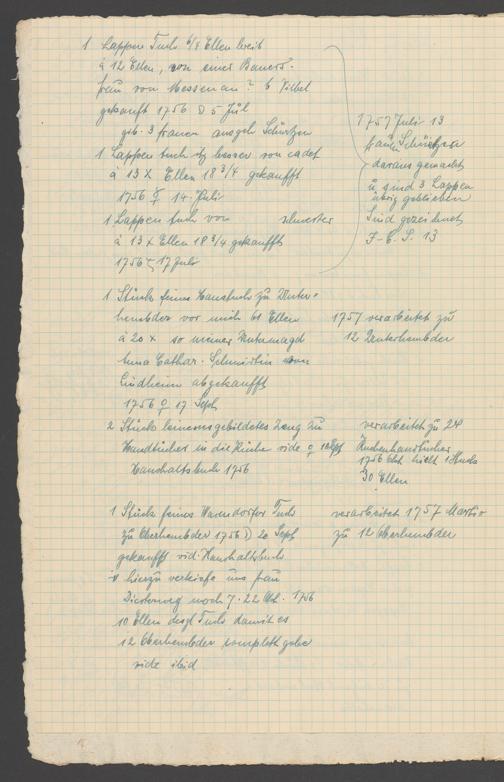 1 Lappen Tuch 6/4 Ellen breit
à 12 Ellen, von einer Bauers-
frau von Messenau? b Vilbel
gekauft 1756 ☽ 5 Jul
gib. 3 frauen Schürzen
1 Lappen tuch besser von
à 13 x Ellen 18 3/4 gekaufft
1756 ☿ 14 Juli
1 Lappen tuch von
à 13 x Ellen 18 3/4 gekaufft
1756 17 Juli
1757 Juli 13
frauen Schürzen
daraus gemacht
u sind 3 Lappen
übrig geblieben
Sind gezeichnet
J-C. S. 13
1 Stück feines Haustuch zu Unter-
hembder vor mich 61 Ellen
à 20 x so meiner Untermagd
Anna Cathar. Schmirtin von
Lindheim abgekaufft
1756 ♀ 17 Sept
1757 verarbeitet zu
12 Unterhembder
2 Stück leinen gebildetes Zeug zu
Handtücher in die Küche vide ♀ Sept
Haushaltsbuch 1756
verarbeitet zu 24
Küchenhandtücher
1756 Oct hielt 1 Stück
30 Ellen
1 Stück feines Warendorfer Tuch
zu Oberhembder 1756 ☽ 20 Sept
gekaufft vid. Haushaltsbuch
hierzu verkaufe uns frau
Diesterweg noch 7. 22 Oct. 1756
10 Ellen desgl Tuch damit es
12 Oberhembder complett gebe
vide ibid
verarbeitet 1757 Martio
zu 12 Oberhembder